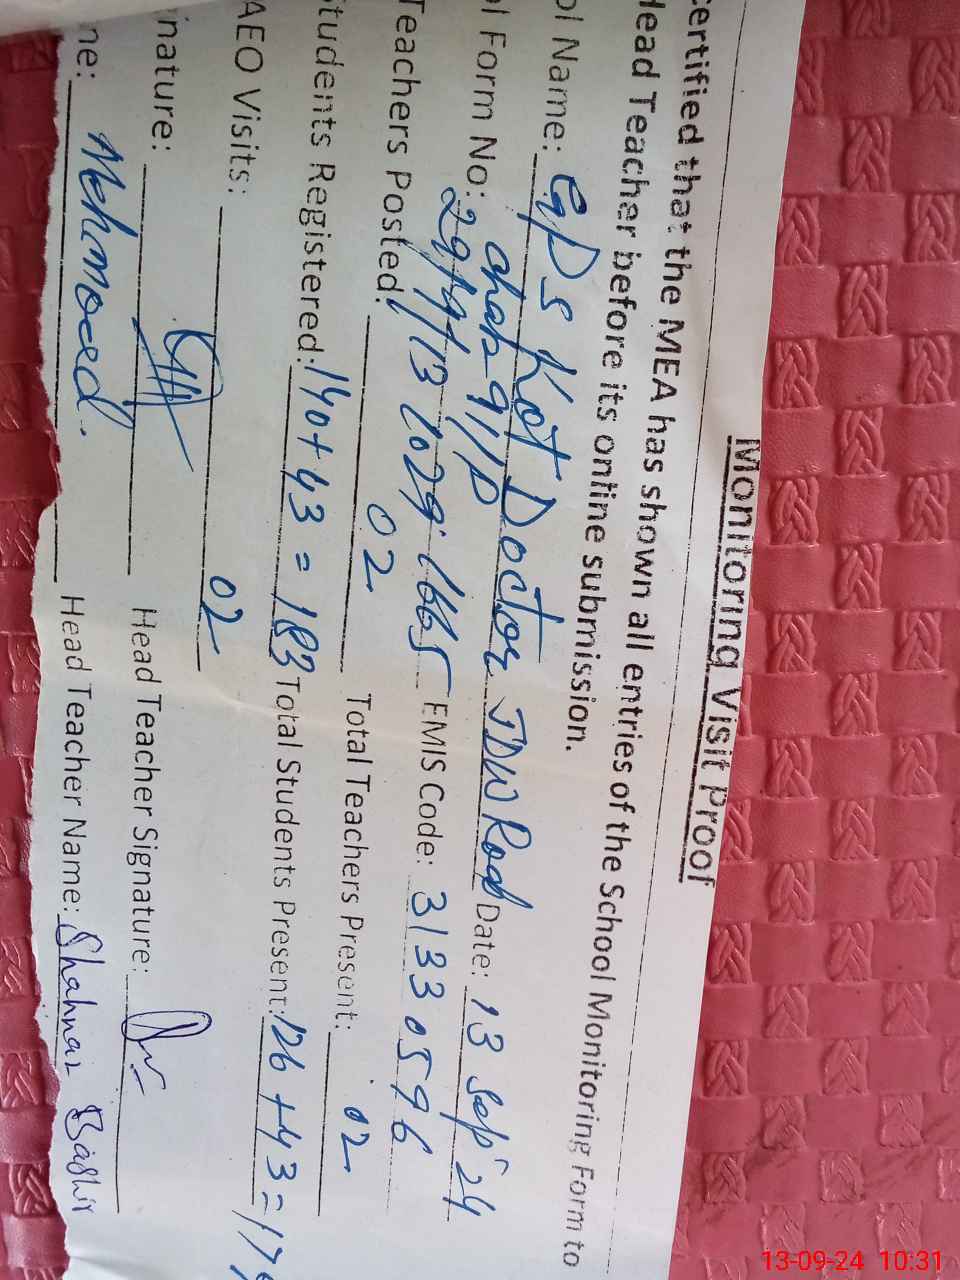 Monitoring Visit Proof
Certified that the MEA has shown all entries of the School Monitoring Form to
Head Teacher before its online submission.
ol Name: GPS Kot Doctor JDW Road Date: 13 Sep 24
chak 91/P
ol Form No: 29/9/13 1029.1665 EMIS Code: 31330596
Teachers Posted: 02 Total Teachers Present: 02
Students Registered: 140+43=183 Total Students Present: 126+43=
AEO Visits: 02
nature: Head Teacher Signature:
ne: Mehmood. Head Teacher Name: Shahnaz Bashir
13-09-24 10:31